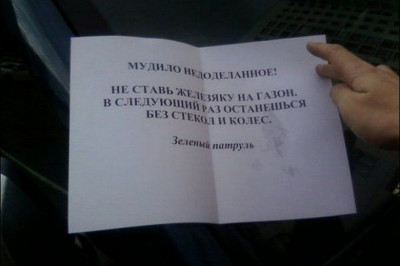 МУДИЛО НЕДОДЕЛАННОЕ!
НЕ СТАВЬ ЖЕЛЕЗЯКУ НА ГАЗОН.
В СЛЕДУЮЩИЙ РАЗ ОСТАНЕШЬСЯ
БЕЗ СТЕКОЛ И КОЛЕС.
Зеленый патруль